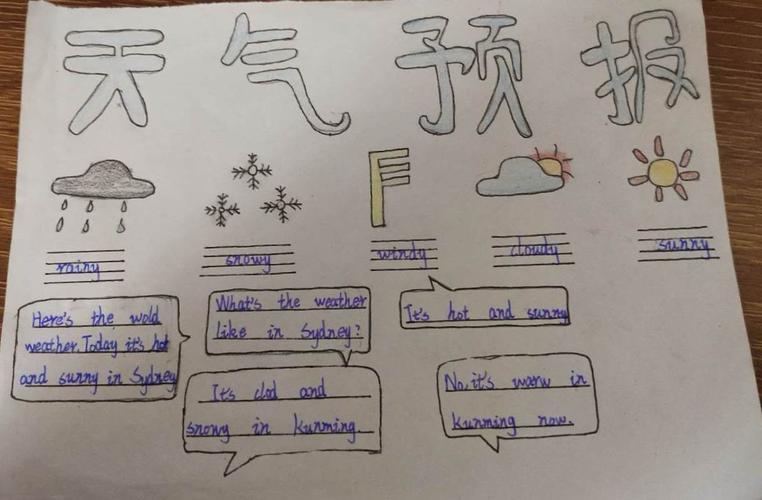 天气预报
rainy
snowy
windy
cloudy
sunny
Here's the wold
weather. Today it's hot
and sunny in Sydney
What's the weather
like in Sydney?
It's hot and sunny
It's clod and
snowy in Kunming.
No, it's warw in
Kunming now.